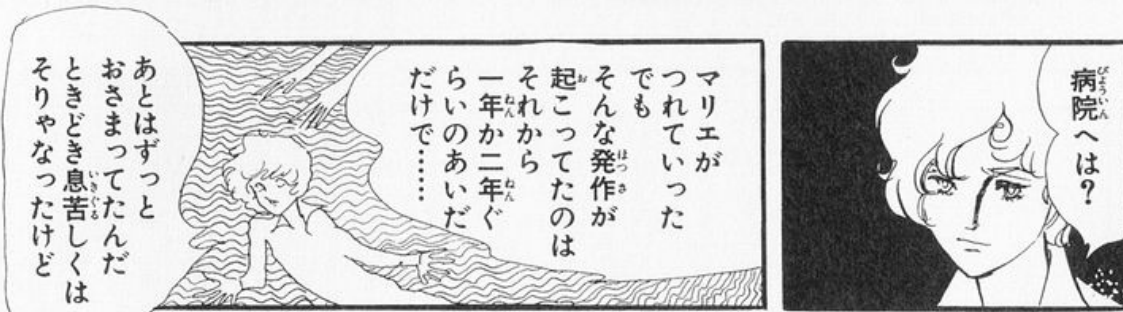 病院へは？
マリエが
つれていった
でも
そんな発作が
起こってたのは
それから
一年か二年ぐ
らいのあいだ
だけで……
あとはずっと
おさまってたんだ
ときどき息苦しくは
そりゃなったけど